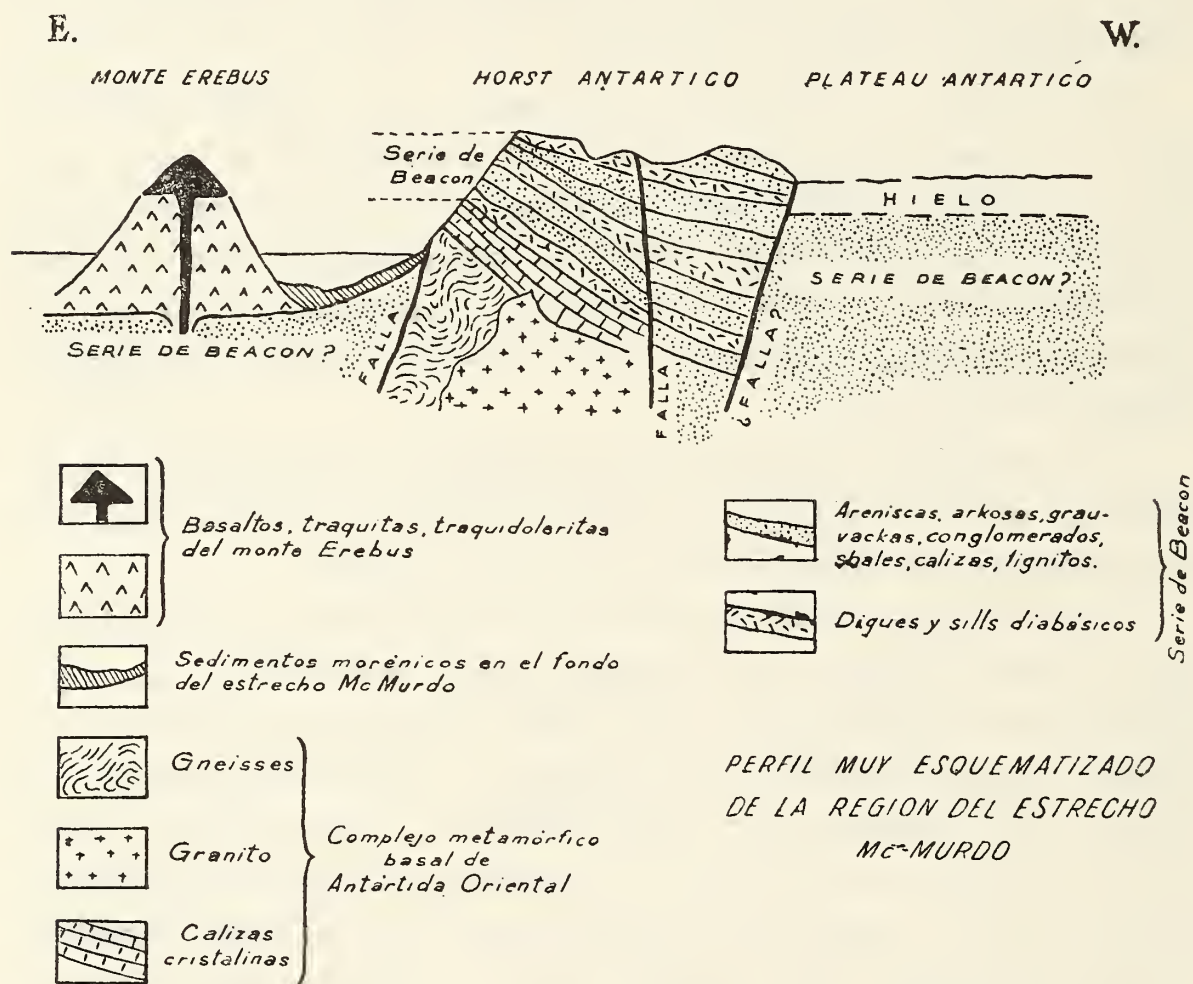 E.
W.
MONTE EREBUS
HORST ANTARTICO
PLATEAU ANTARTICO
Serie de
Beacon
HIELO
SERIE DE BEACON?
SERIE DE BEACON?
FALLA
FALLA
¿FALLA?
Basaltos, traquitas, traquidoleritas
del monte Erebus
Sedimentos morénicos en el fondo
del estrecho Mc Murdo
Gneisses
Granito
Calizas
cristalinas
Complejo metamórfico
basal de
Antártida Oriental
Areniscas, arkosas, grau-
vackas, conglomerados,
shales, calizas, lignitos.
Diques y sills diabásicos
Serie de Beacon
PERFIL MUY ESQUEMATIZADO
DE LA REGION DEL ESTRECHO
Mc-MURDO